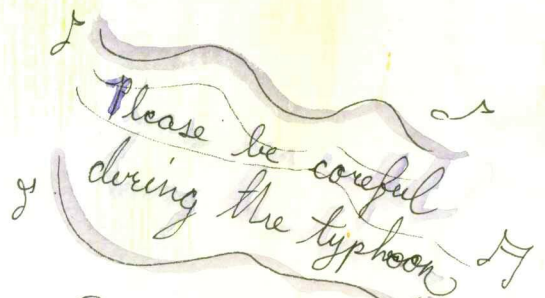 Please be careful
during the typhoon